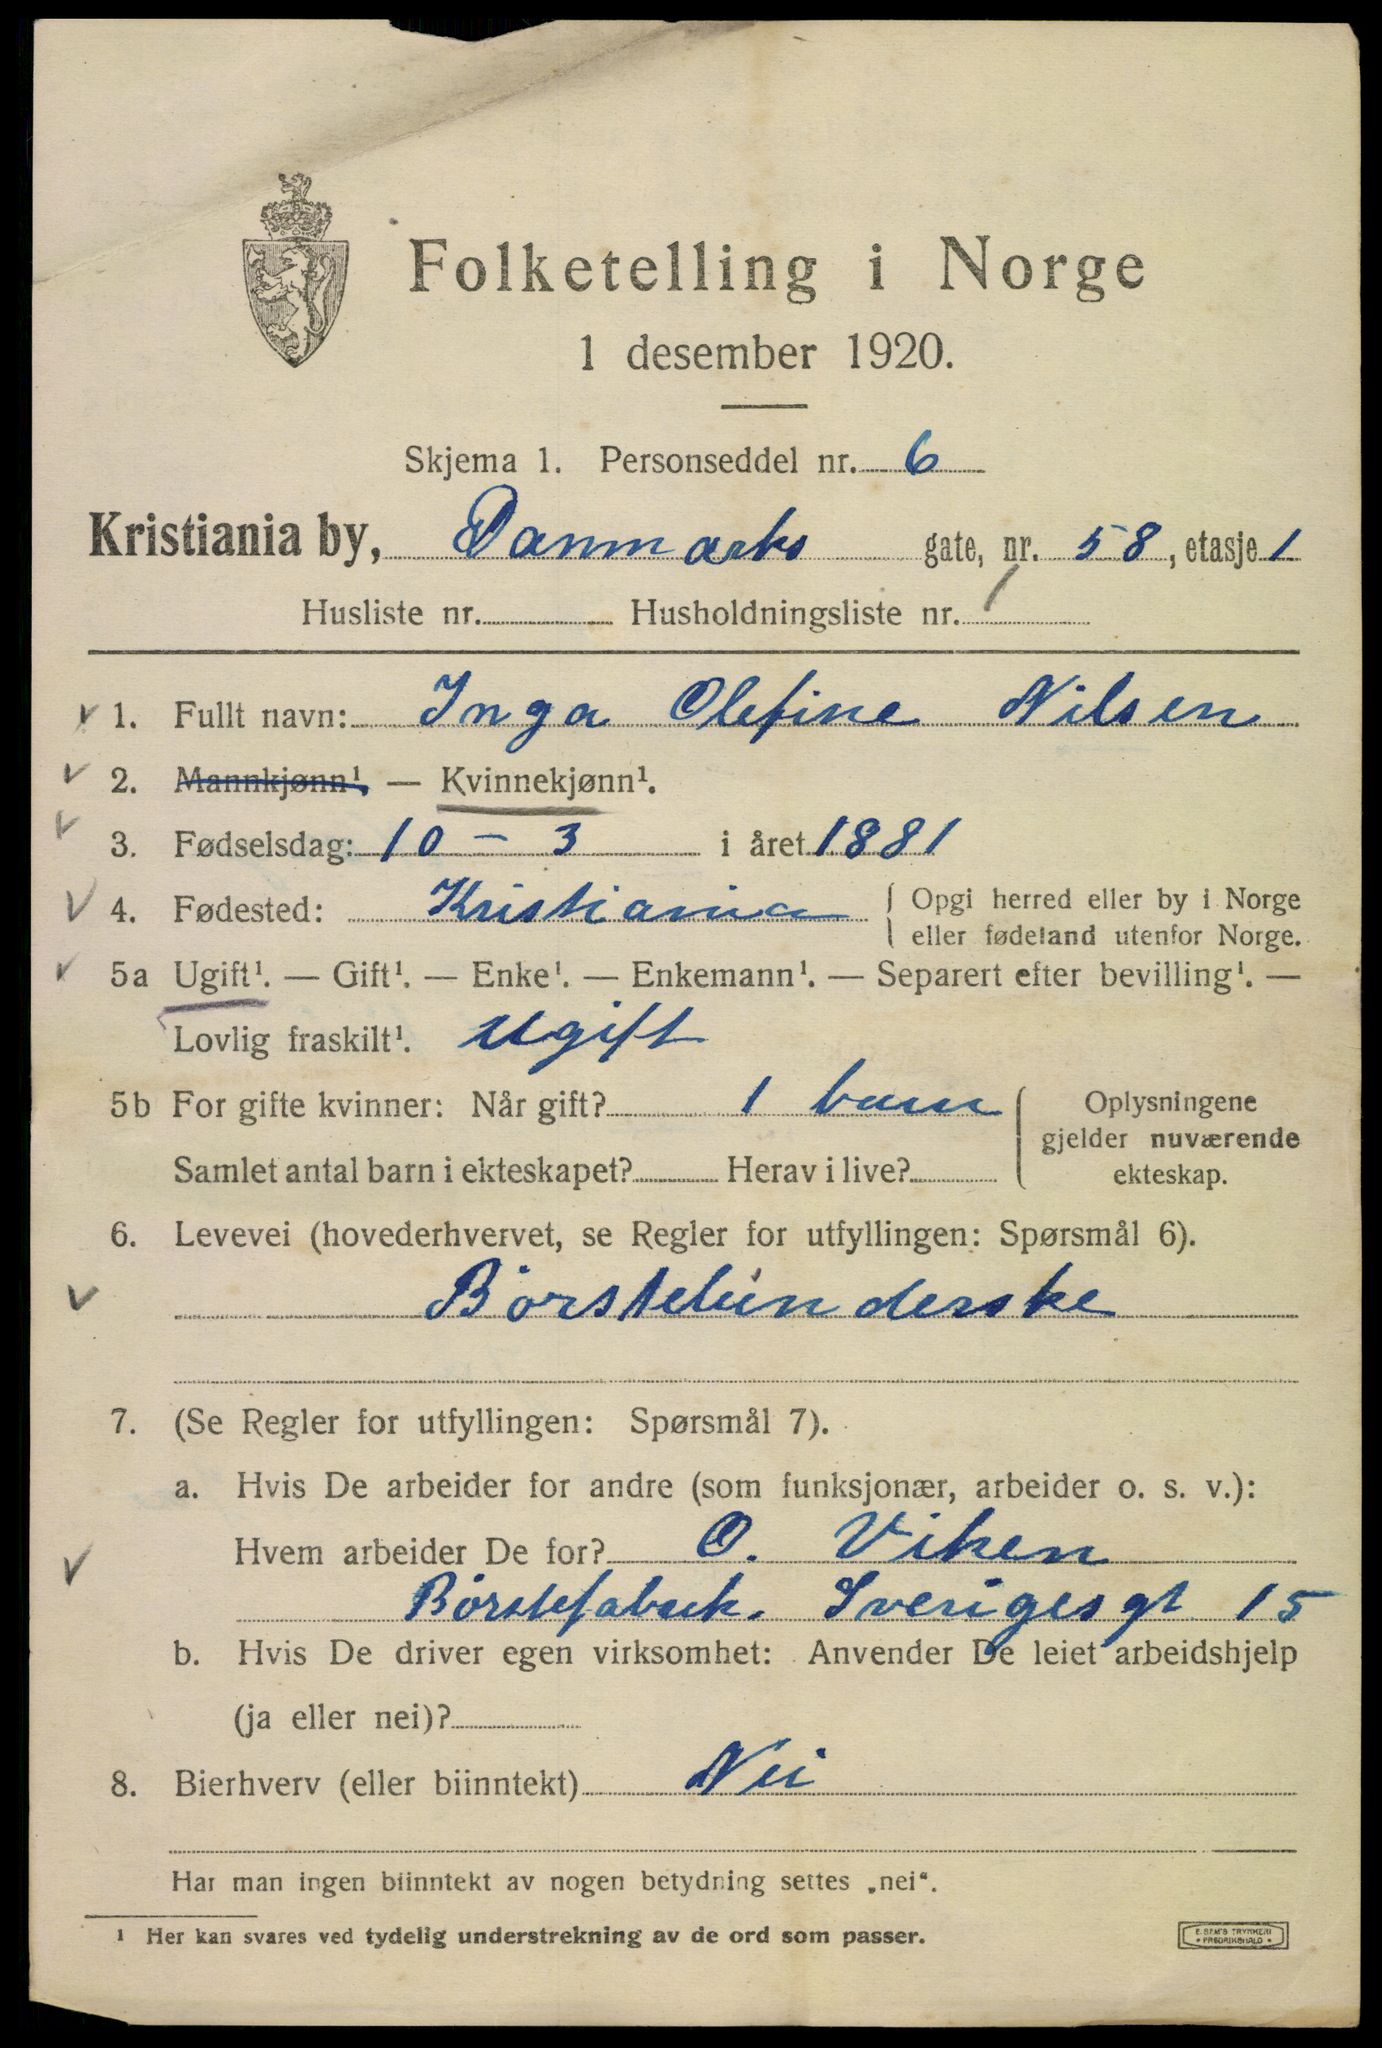 Folketelling i Norge
1 desember 1920.
Skjema 1. Personseddel nr. 6
Kristiania by, Danmarks gate, nr. 58, etasje 1
Husliste nr. Husholdningsliste nr. 1
1. Fullt navn: Inga Olefine Nilsen
2. Mannkjønn¹. — Kvinnekjønn¹.
3. Fødselsdag: 10 – 3 i året 1881
4. Fødested: Kristiania { Opgi herred eller by i Norge
eller fødeland utenfor Norge.
5a Ugift¹. — Gift¹. — Enke¹. — Enkemann¹. — Separert efter bevilling¹. —
Lovlig fraskilt¹. Ugift
5b For gifte kvinner: Når gift? 1 barn
Samlet antal barn i ekteskapet? Herav i live?
{ Oplysningene
gjelder nuværende
ekteskap.
6. Levevei (hovederhvervet, se Regler for utfyllingen: Spørsmål 6).
Börstebinderske
7. (Se Regler for utfyllingen: Spørsmål 7).
a. Hvis De arbeider for andre (som funksjonær, arbeider o. s. v.):
Hvem arbeider De for? O. Viken
Börstefabrik. Sverigesgt 15
b. Hvis De driver egen virksomhet: Anvender De leiet arbeidshjelp
(ja eller nei)?
8. Bierhverv (eller biinntekt) Nei
Har man ingen biinntekt av nogen betydning settes „nei“.
¹ Her kan svares ved tydelig understrekning av de ord som passer.
E. SEM'S TRYKKERI
• FREDRIKSHALD •